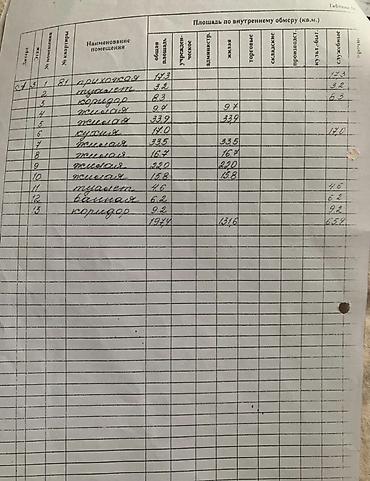 Площадь по внутреннему обмеру (кв.м.)
Литера Этаж № комнаты № квартиры Наименование помещения общая площадь учрежден-ческое администр. жилая торговые складские производст. культ.-быт. служебные
3 1 81 прихожая 17.3 17.3
2 туалет 3.2 3.2
3 коридор 8.3 8.3
4 жилая 9.7 9.7
5 жилая 33.9 33.9
6 кухня 17.0 17.0
7 жилая 33.5 33.5
8 жилая 16.7 16.7
9 жилая 22.0 22.0
10 жилая 15.8 15.8
11 туалет 4.6 4.6
12 ванная 6.2 6.2
13 коридор 9.2 9.2
197.4 131.6 65.4